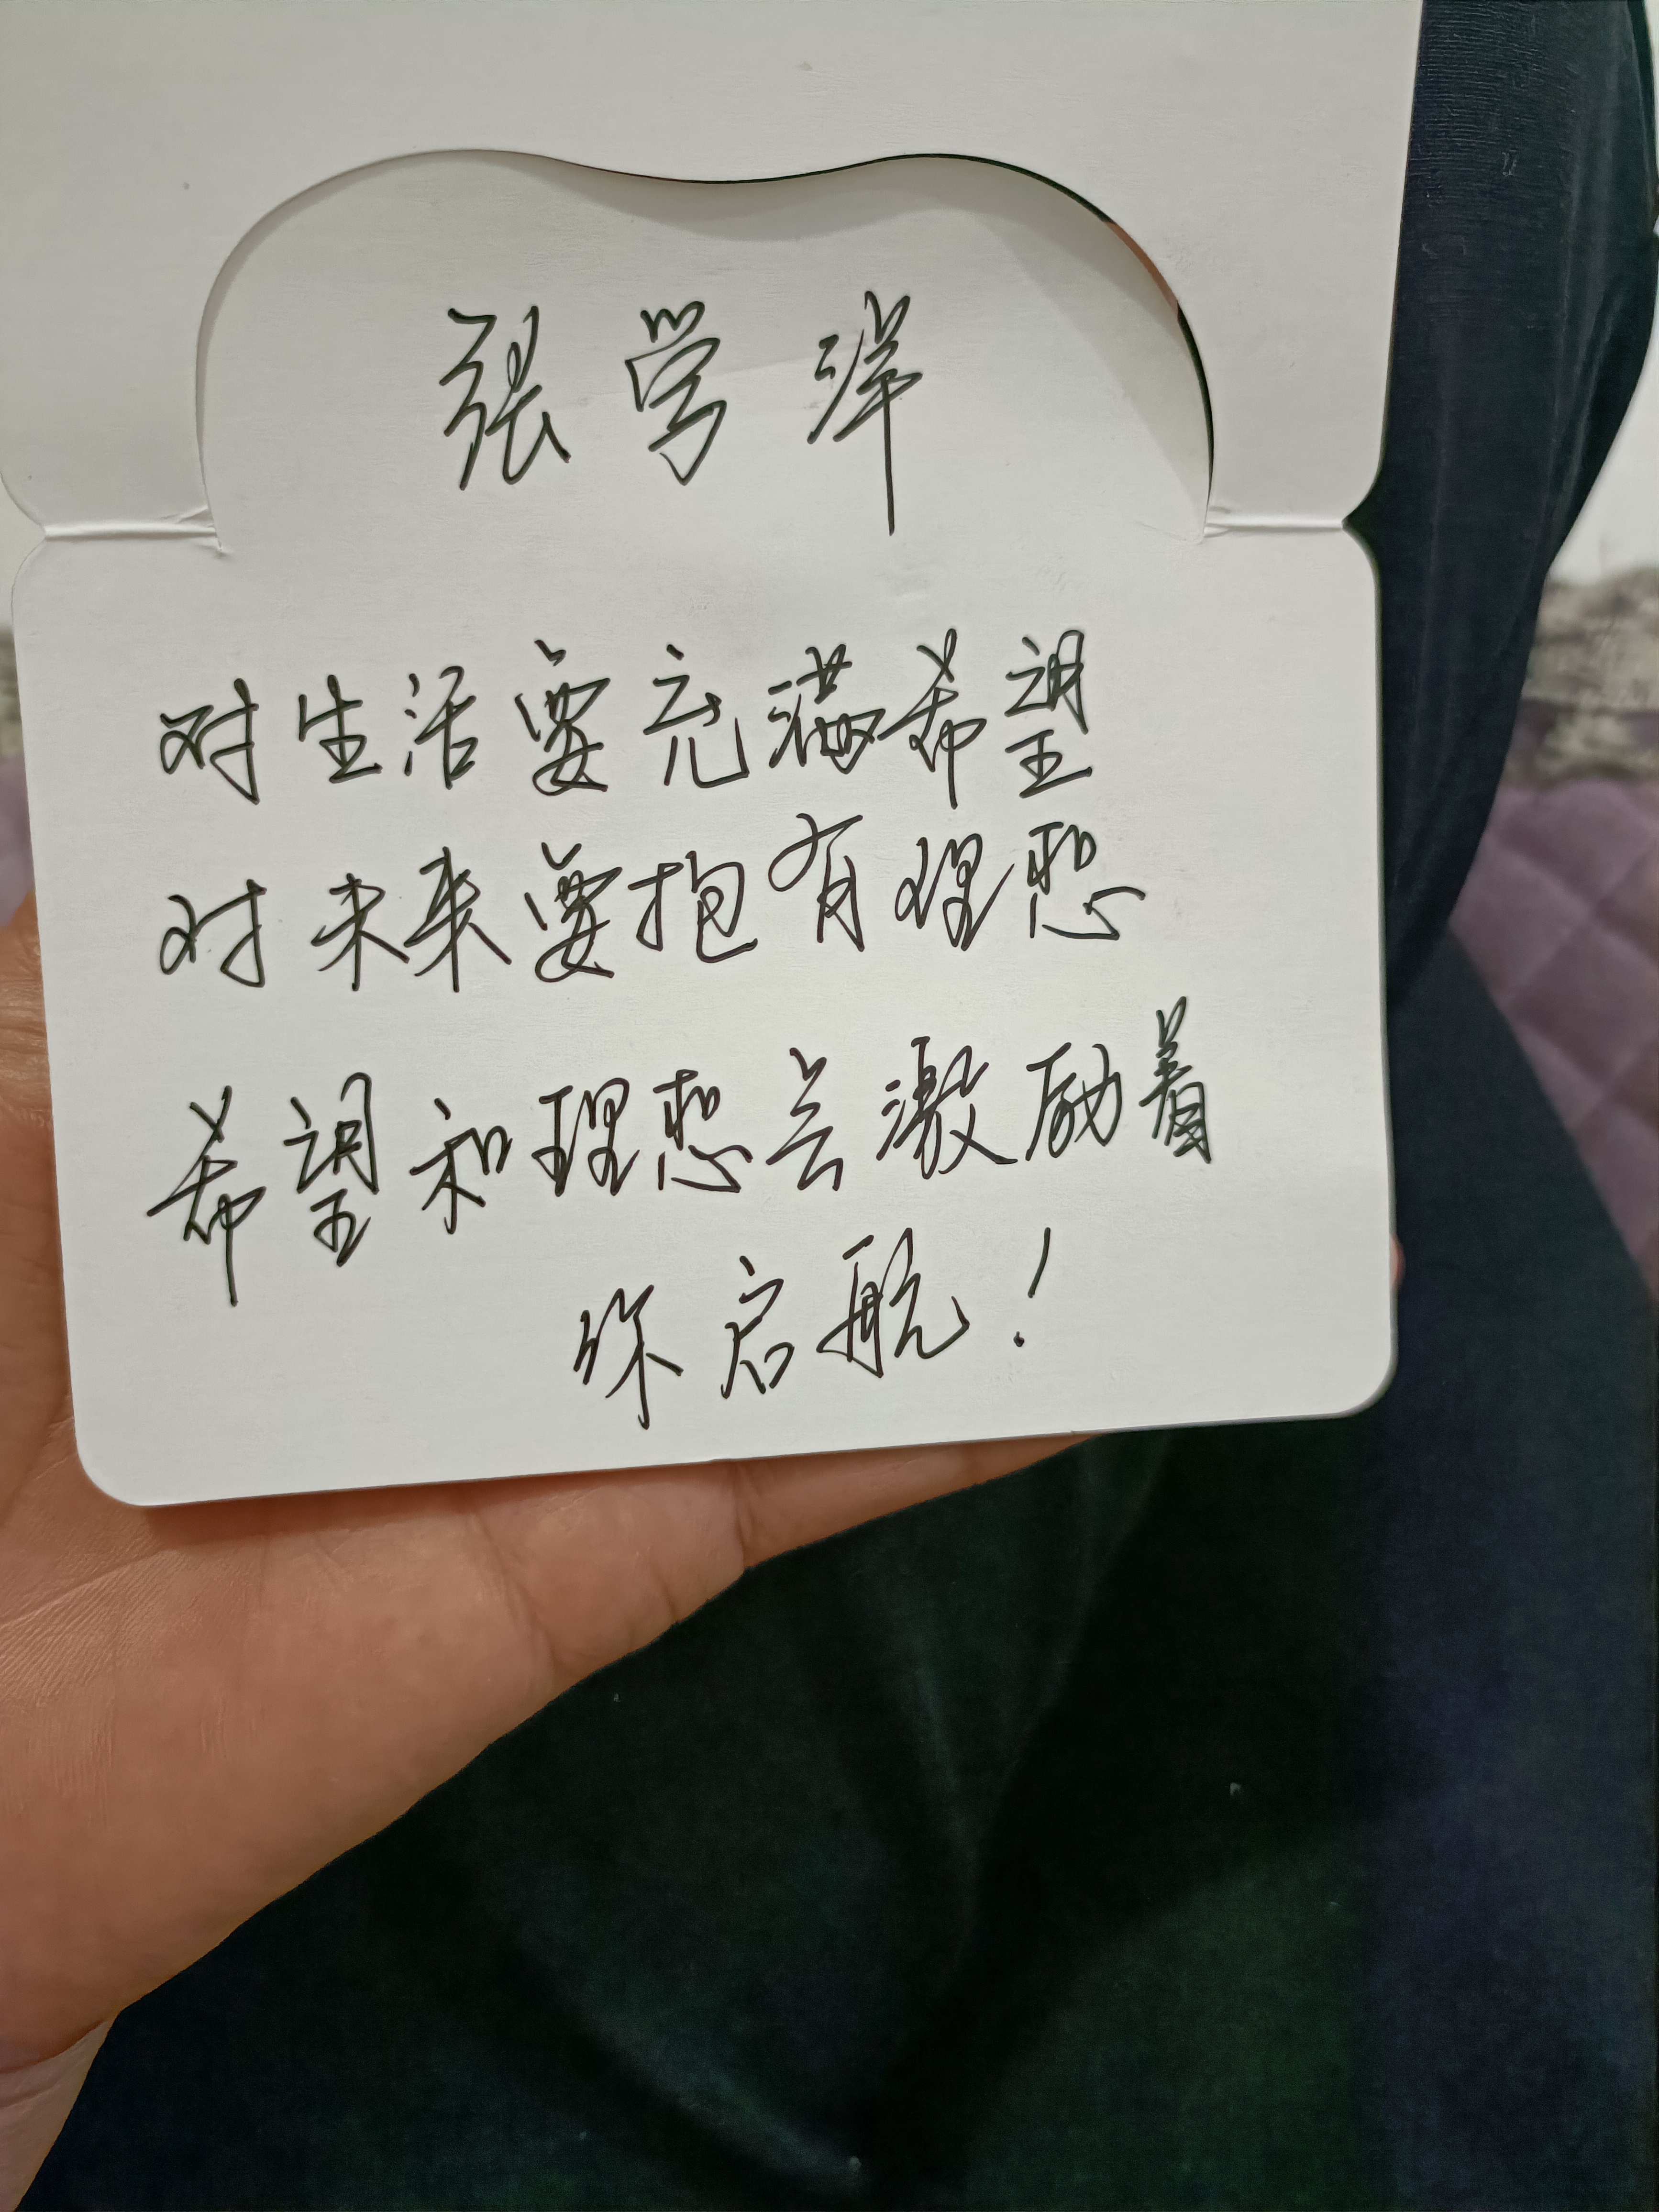 张学洋
对生活要充满希望
对未来要抱有理想
希望和理想会激励着
你启航！